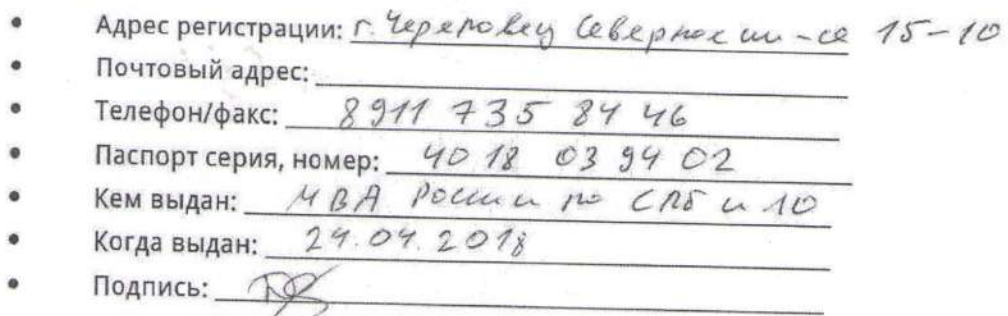 • Адрес регистрации: г. Череповец Северное ш-се 15-10
• Почтовый адрес:
• Телефон/факс: 8911 735 84 46
• Паспорт серия, номер: 40 18 03 94 02
• Кем выдан: МВД России по СПб и ЛО
• Когда выдан: 24.04.2018
• Подпись: